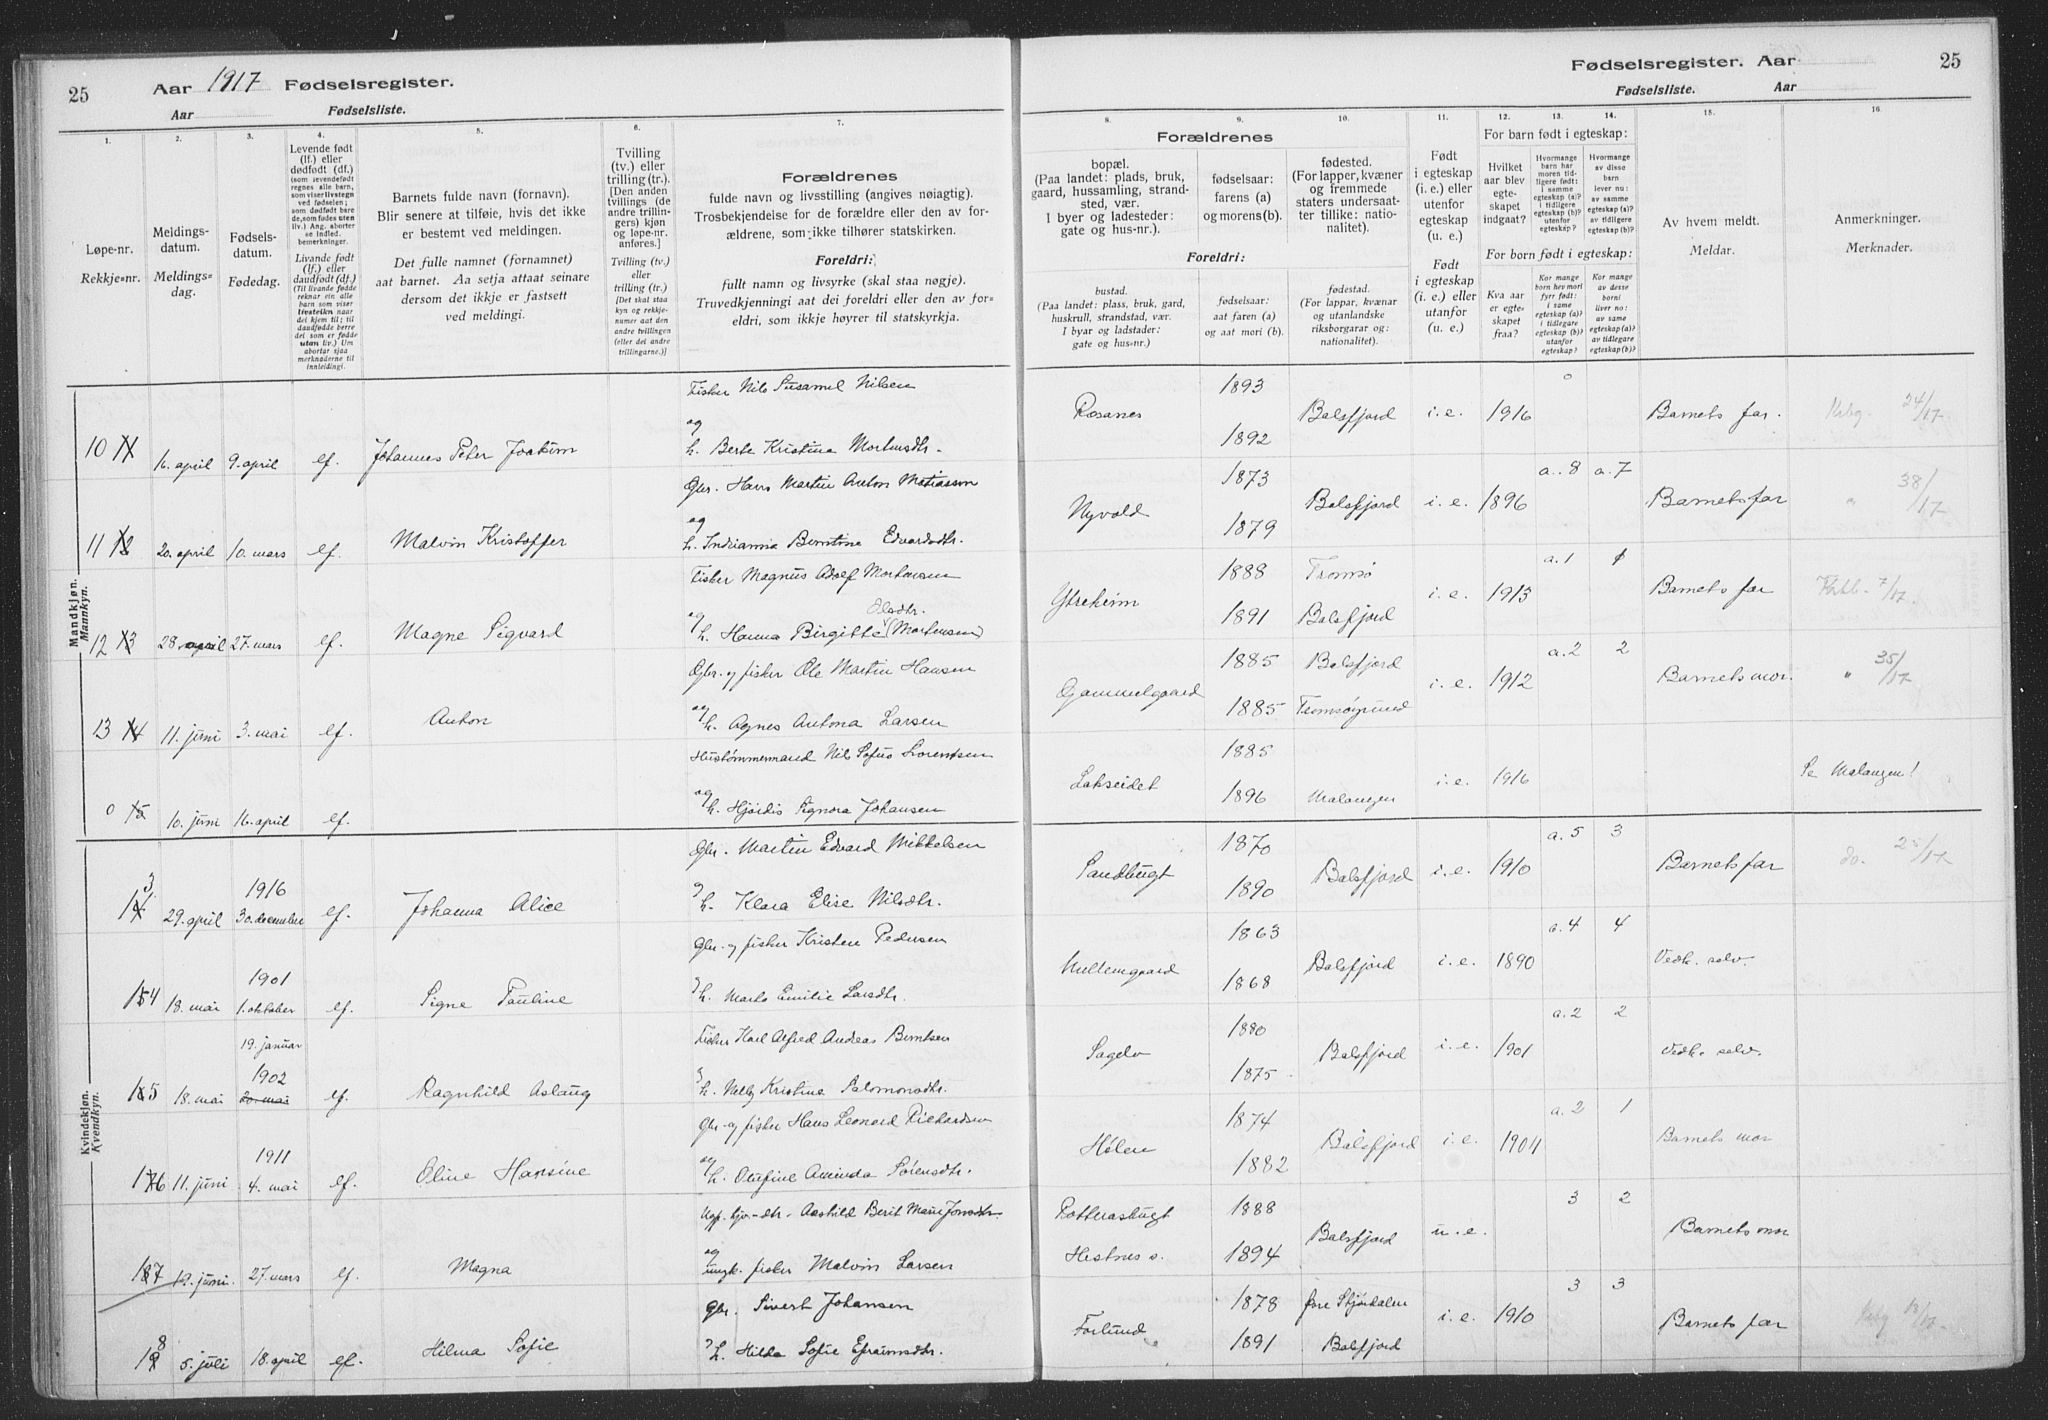 25 Aar 1917 Fødselsregister.
Aar Fødselsliste.
Fødselsregister. Aar 25
Fødselsliste. Aar
1.
Løpe-nr.
Rekkje-nr.
2.
Meldings-
datum.
Meldings-
dag.
3.
Fødsels-
datum.
Fødedag.
4.
Levende født
(lf.) eller
dødfødt (df.)
(som levendefødt
regnes alle barn,
som viser livstegn
ved fødselen;
som dødfødt bare
de, som fødes uten
liv.) Ang. aborter
se indled.
bemerkninger.
Livande fødd
(lf.) eller
daudfødt (df.)
(Til livande fødde
reknar ein alle
barn som viser
livsteikn naar
dei kjem til; til
daudfødde berre
dei som er fødde
utan liv.) Um
abortar sjaa
merknaderne til
innleidingi.
5.
Barnets fulde navn (fornavn).
Blir senere at tilføie, hvis det ikke
er bestemt ved meldingen.
Det fulle namnet (fornamnet)
aat barnet. Aa setja attaat seinare
dersom det ikkje er fastsett
ved meldingi.
6.
Tvilling
(tv.) eller
trilling (tr.).
[Den anden
tvillings (de
andre trillin-
gers) kjøn
og løpe-nr.
anføres.]
Tvilling (tv.)
eller
trilling (tr.)
[Det skal staa
kyn og rekkje-
numer aat den
andre tvillingen
(eller dei andre
trillingarne.)]
7.
Forældrenes
fulde navn og livsstilling (angives nøiagtig).
Trosbekjendelse for de forældre eller den av for-
ældrene, som ikke tilhører statskirken.
Foreldri:
fullt namn og livsyrke (skal staa nøgje).
Truvedkjenningi aat dei foreldri eller den av for-
eldri, som ikkje høyrer til statskyrkja.
Forældrenes
8.
bopæl.
(Paa landet: plads, bruk,
gaard, hussamling, strand-
sted, vær.
I byer og ladesteder:
gate og hus-nr.).
9.
fødselsaar:
farens (a)
og morens (b).
10.
fødested.
(For lapper, kvæner
og fremmede
staters undersaat-
ter tillike: natio-
nalitet).
Foreldri:
bustad.
(Paa landet: plass, bruk, gard,
huskrull, strandstad, vær.
I byar og ladstader:
gate og hus-nr.)
fødselsaar:
aat faren (a)
og aat mori (b).
fødestad.
(For lappar, kvænar
og utanlandske
riksborgarar og:
nationalitet).
11.
Født
i egteskap
(i. e.) eller
utenfor
egteskap
(u. e.)
Født
i egteskap
(i. e.) eller
utanfor
(u. e.)
12. 13. 14.
For barn født i egteskap:
Hvilket
aar blev
egte-
skapet
indgaat?
Hvormange
barn har
moren tid-
ligere født:
i samme
egteskap (a)?
i tidligere
egteskap (b)?
utenfor
egteskap?
Hvormange
av disse
barn
lever nu:
av samme
egteskap (a)?
av tidligere
egteskap (b)?
For born født i egteskap:
Kva aar
er egte-
skapet
fraa?
Kor mange
born hev mori
fyrr født:
i same
egteskap (a)?
i tidlegare
egteskap (b)?
utanfor
egteskap?
Kor mange
av desse
borni
liver no:
av same
egteskap (a)?
av tidlegare
egteskap (b)?
15.
Av hvem meldt.
Meldar.
16.
Anmerkninger.
Merknader.
Mandkjøn.
Mankyn.
Fisker Nils Susamel Nilsen 1893 0
10 11 16. april 9. april lf. Johannes Peter Joakim og Rosanes Balsfjord i. e. 1916 Barnets far. 24/17
h. Berte Kristina Mortensdtr. 1892
Gbr. Hans Martin Anton Matiasson 1873 a. 8 a. 7
11 12 20. april 10. mars lf. Malvin Kristoffer og Nyvold Balsfjord i. e. 1896 Barnets far " 38/17
h. Indianna Berntine Edvardsdtr. 1879
Fisker Magnus Adolf Mortensen 1888 Tromsø a. 1 1
12 13 28. april 27. mars lf. Magne Sigvard og Olsdtr. Ytreheim i. e. 1913 Barnets far 7/17.
h. Hanna Birgitte (Mortensen) 1891 Balsfjord
Gbr. og fisker Ole Martin Hansen 1885 Balsfjord a. 2 2
13 14 11. juni 3. mai lf. Anton og Gammelgaard i. e. 1912 Barnets mor. " 35/17
h. Agnes Antona Larsen 1885 Tromsøysund
Hustømmermand Nils Sofus Lorentsen 1885
0 15 10. juni 16. april lf. og Lakseidet Malangen i. e. 1916 Se Malangen!
h. Hjørdis Signora Johansen 1896
Kvindekjøn.
Kvendkyn.
Gbr. Martin Edvard Mikkelsen 1870 a. 5 3
3 14 29. april 1916 30. december lf. Johanna Alice Sandbugt Balsfjord i. e. 1910 Barnets far do. 25/17
h. Klara Elise Nilsdtr. 1890
Gbr. og fisker Kristen Pedersen 1863 a. 4 4
15 4 18. mai 1901 1. oktober lf. Signe Pauline Balsfjord i. e. 1890 Vedk. selv.
h. Marta Emilie Larsdtr. 1868
Fisker Karl Alfred Andreas Berntsen 1880 a. 2 2
16 5 18. mai 19. januar 1902 20. mai lf. Ragnhild Aslaug Sagelv Balsfjord i. e. 1901 Vedk. selv.
h. Nelly Kristine Salomonsdtr. 1875
Gbr. og fisker Hans Leonard Richardsen 1874 a. 2 1
17 6 11. juni 1911 4. mai lf. Oline Hansine og Hølen Balsfjord i. e. 1904 Barnets mor
h. Olufine Aminda Sørensdtr. 1882
Aashild Berit Marie Jonsdtr. 1888 3 2
18 7 19. juni. 27. mars lf. Magna og Hestnes s. Balsfjord u. e. Barnets mor
ungk. fisker Malvin Larsen 1894
Gbr. Sivert Johansen 1878 Stjørdalen 3 3
19 8 5. juli 18. april lf. Hilma Sofie Forlund i. e. 1910 Barnets far 18/17
h. Hilda Sofie Efraimsdtr. 1891 Balsfjord